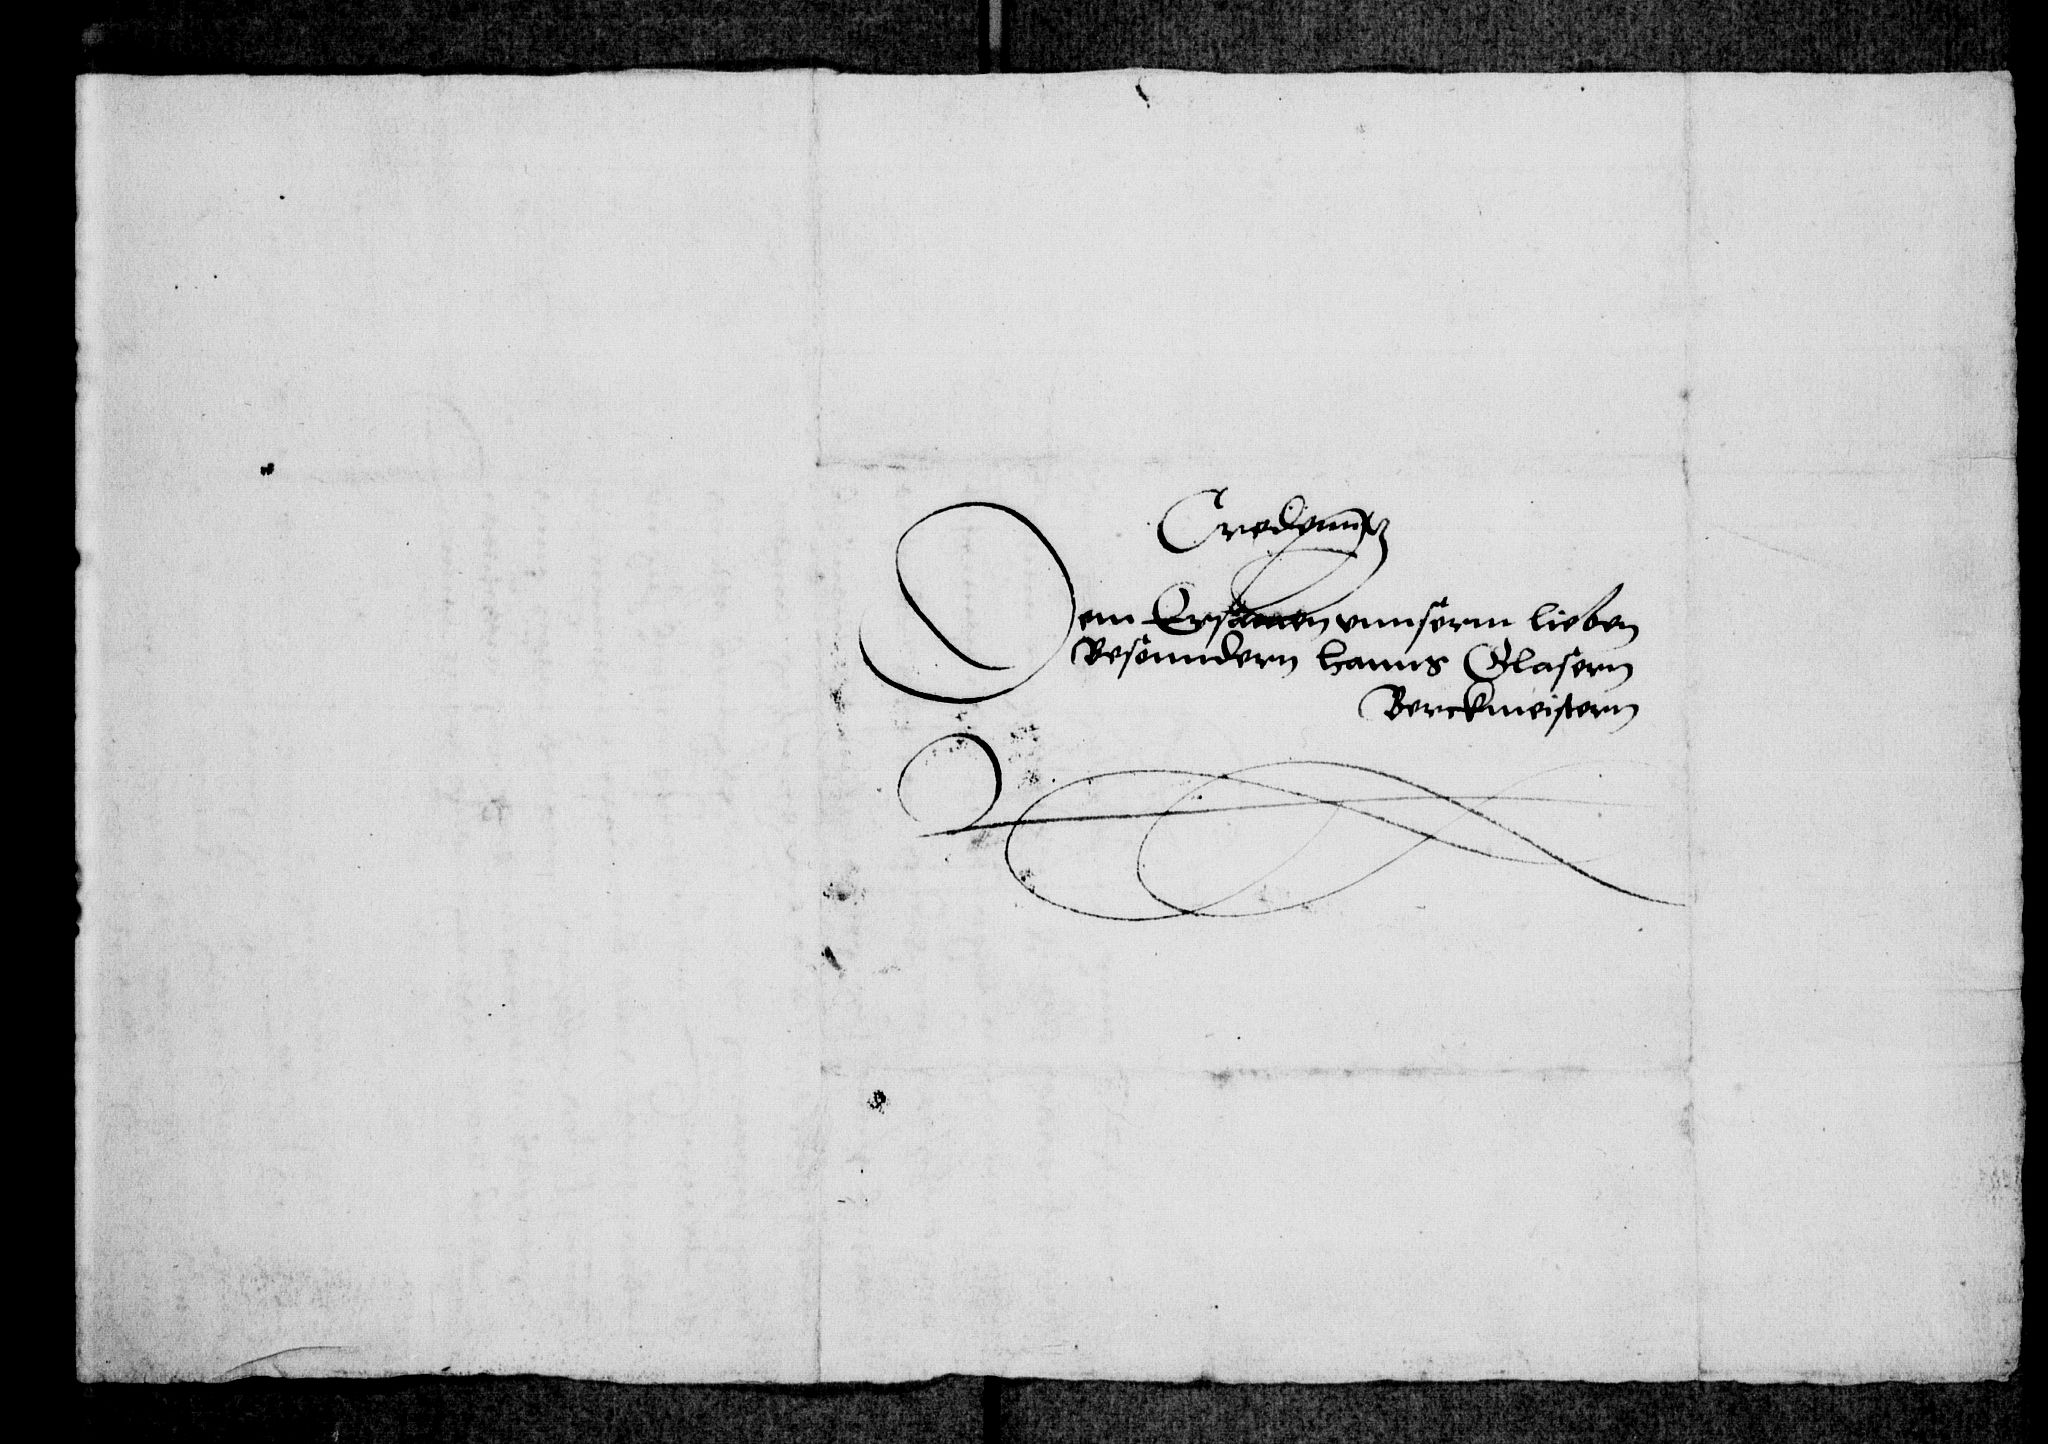 Credenntz
Dem Ersamen vnnserm lieben
Besonndern hanns Glasern
Berckmeistern